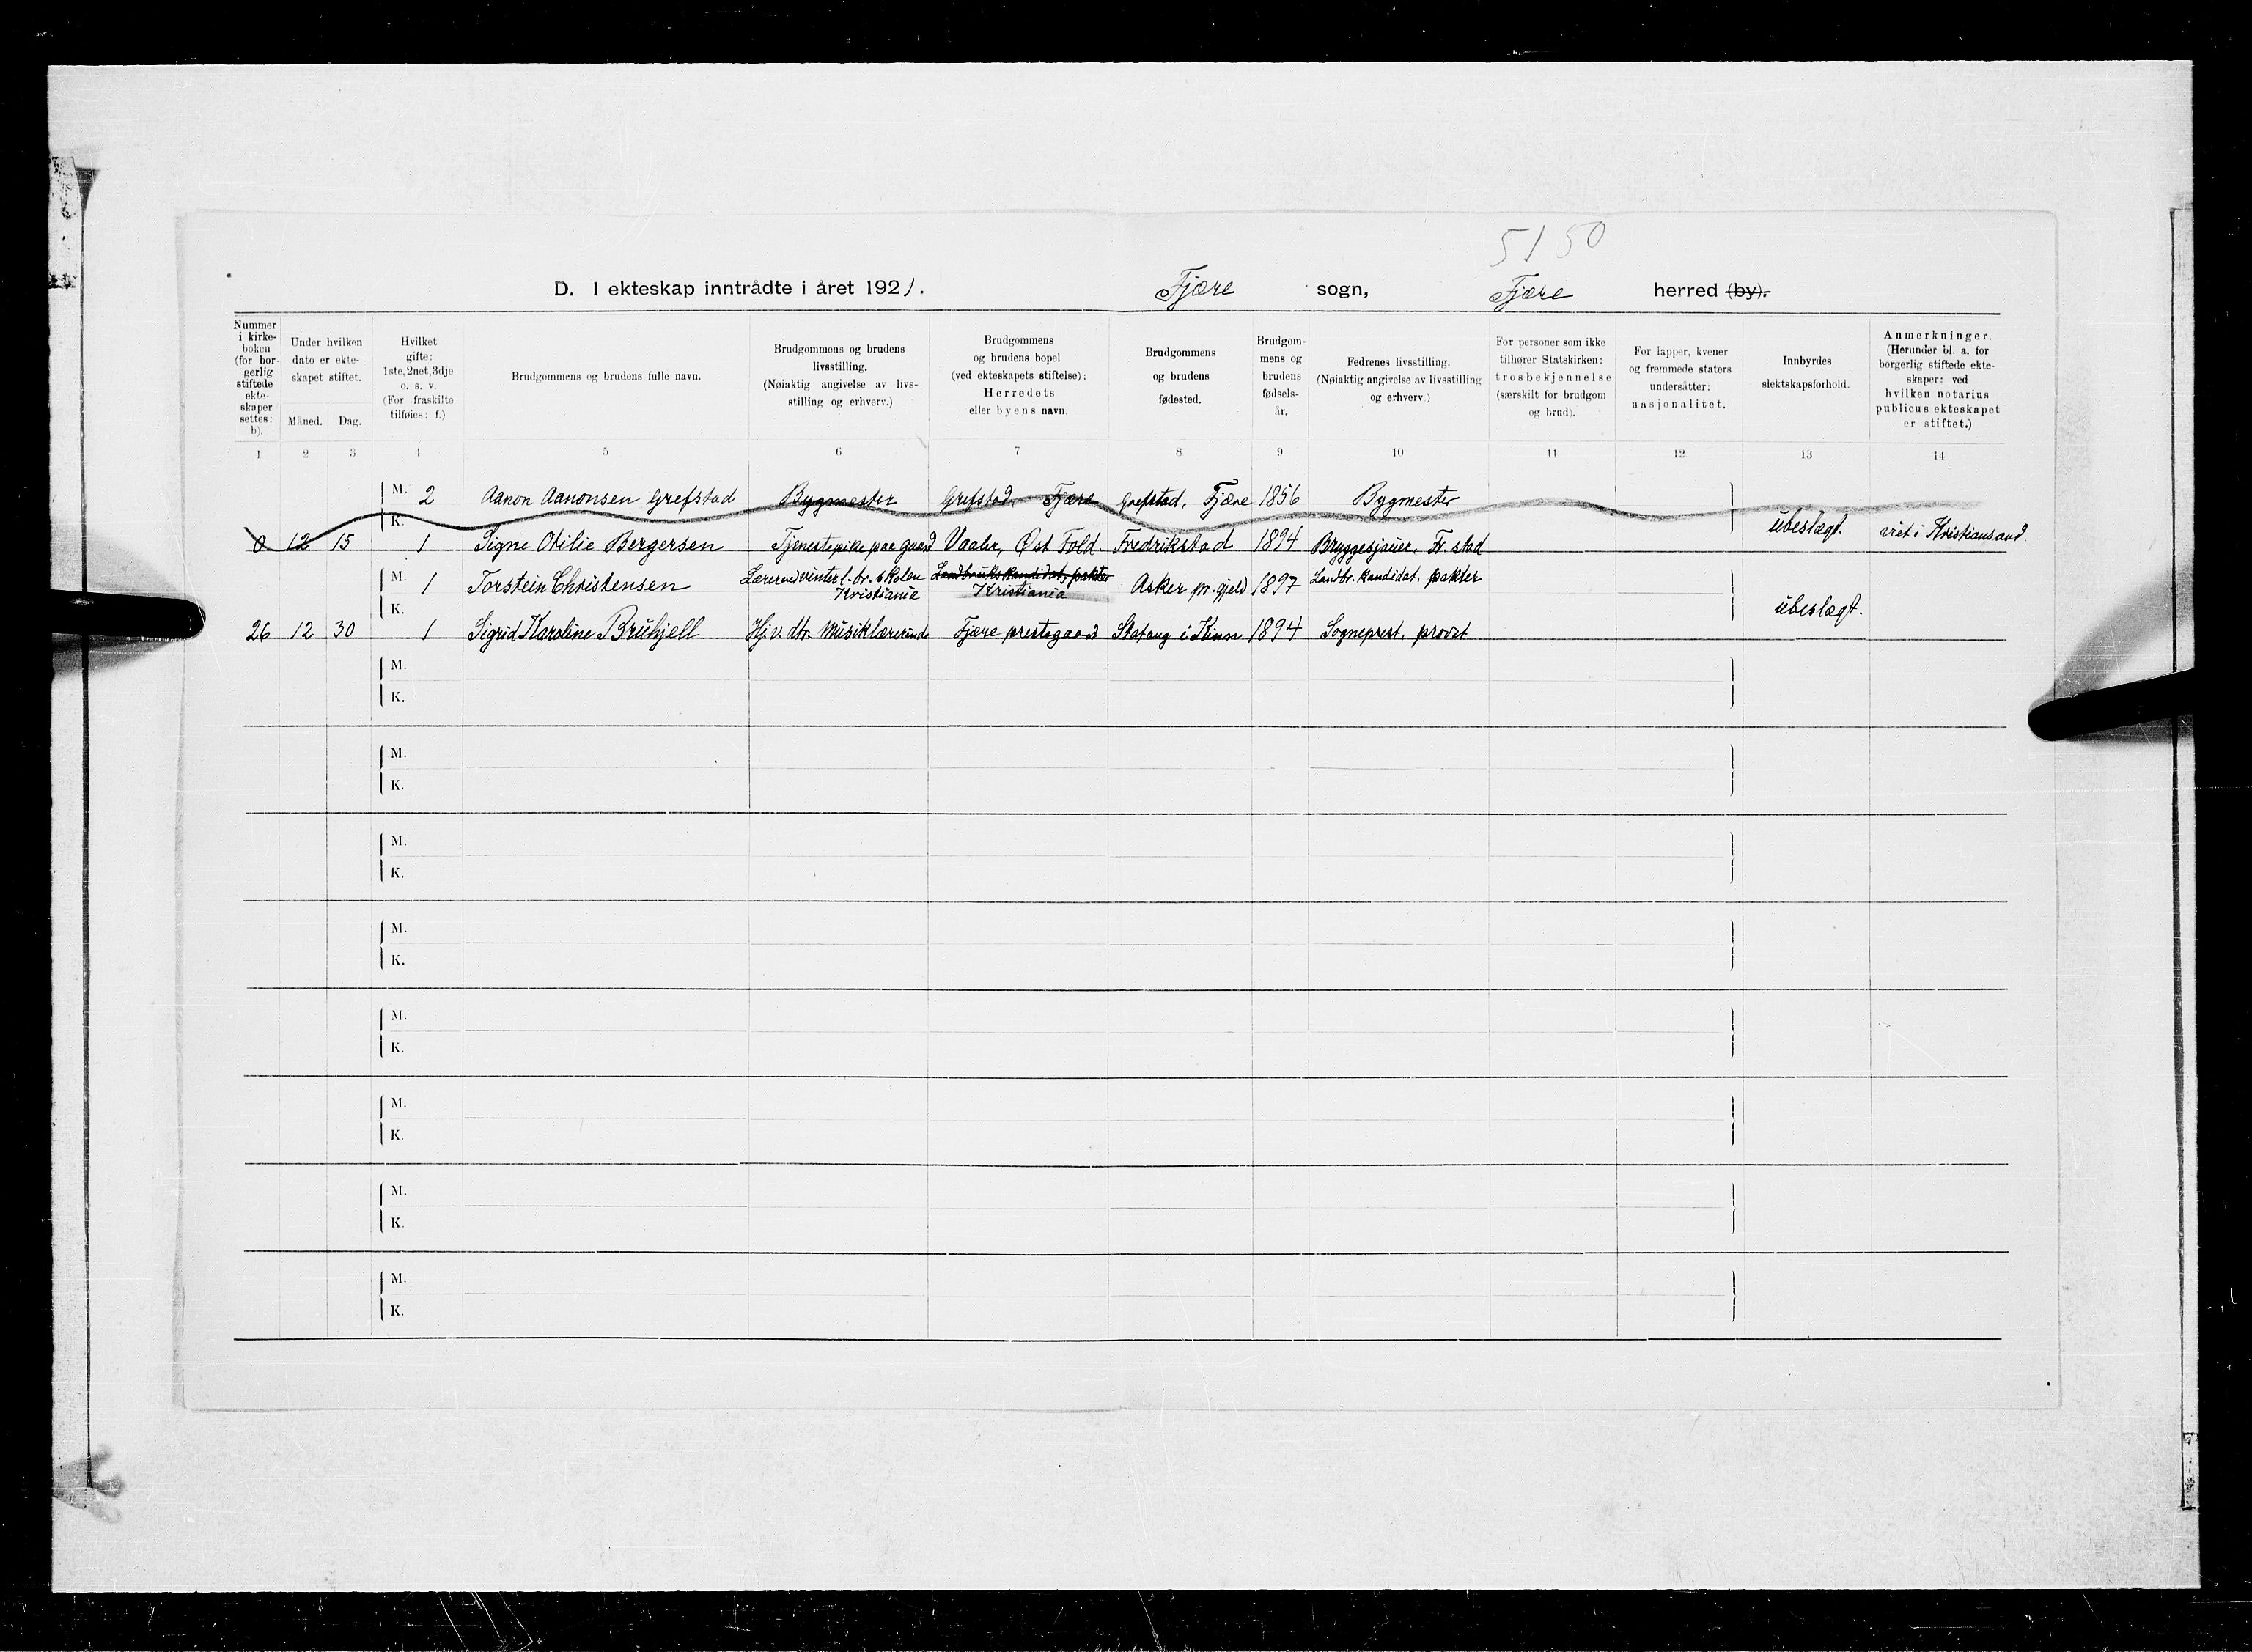 51 50
D. I ekteskap inntrådte i året 1921. Fjære sogn, Fjære herred (by).
Nummer i kirke- boken (for bor- gerlig stiftede ekte- skaper settes: b).
Under hvilken dato er ekte- skapet stiftet.
Måned. Dag.
Hvilket gifte: 1ste, 2net, 3dje o. s. v. (For fraskilte tilføies: f.)
Brudgommens og brudens fulle navn.
Brudgommens og brudens livsstilling. (Nøiaktig angivelse av livs- stilling og erhverv.)
Brudgommens og brudens bopel (ved ekteskapets stiftelse): Herredets eller byens navn.
Brudgommens og brudens fødested.
Brudgom- mens og brudens fødsels- år.
Fedrenes livsstilling. (Nøiaktig angivelse av livsstilling og erhverv.)
For personer som ikke tilhører Statskirken: trosbekjennelse (særskilt for brudgom og brud).
For lapper, kvener og fremmede staters undersåtter: nasjonalitet.
Innbyrdes slektskapsforhold.
Anmerkninger. (Herunder bl. a. for borgerlig stiftede ekte- skaper: ved hvilken notarius publicus ekteskapet er stiftet.)
1 2 3 4 5 6 7 8 9 10 11 12 13 14
M. 2 Aanon Aanonsen Grefstad Bygmester Grefstad, Fjære Grefstad, Fjære 1856 Bygmester
K.
0 12 15 1 Signe Otilie Bergersen Tjenestepike paa gaard Vaaler, Øst Fold. Fredrikstad 1894 Bryggesjauer, Fr.stad ubeslægt. viet i Kristiansand.
M. 1 Torstein Christensen Lærer ved vinterl.-br. skolen Kristiania Landbrukskandidat, pakter Kristiania Asker pr.gjeld 1897 Landbr. kandidat, pakter
K.
26 12 30 1 Sigrid Karoline Bruhjell Hj.v. dtr. Musiklærerinde Fjære prestegaard i Kinn 1894 Sogneprest, provst ubeslægt.
M.
K.
M.
K.
M.
K.
M.
K.
M.
K.
M.
K.
M.
K.
M.
K.